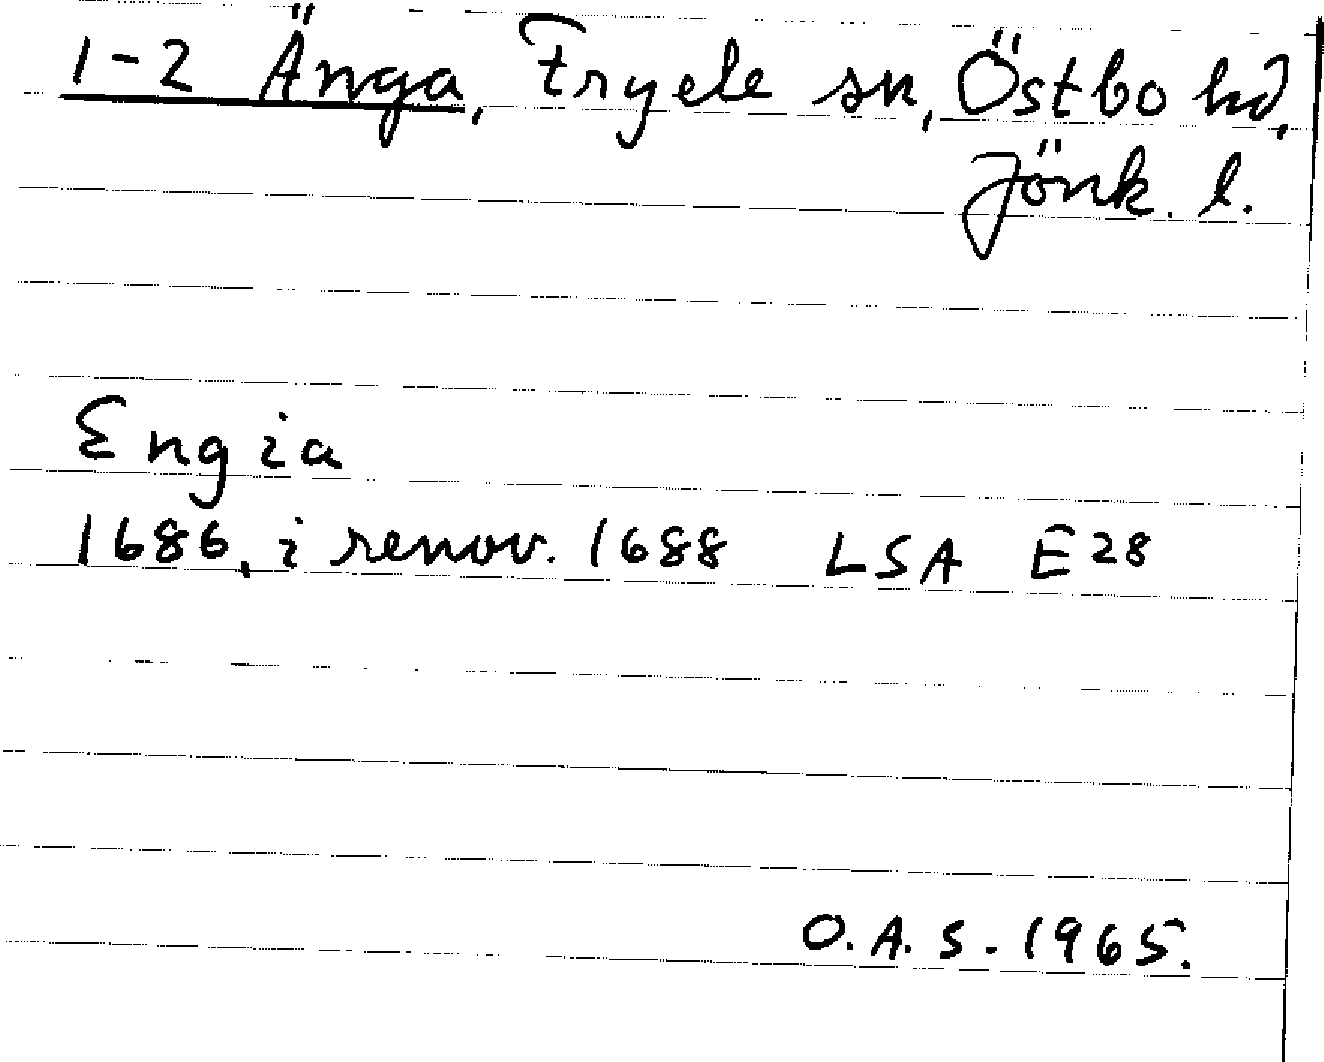 1-2 Änga, Fryele sn, Östbo hd,
Jönk. l.
Engia
1686, i renov. 1688 LSA E 28
O.A.S. 1965.